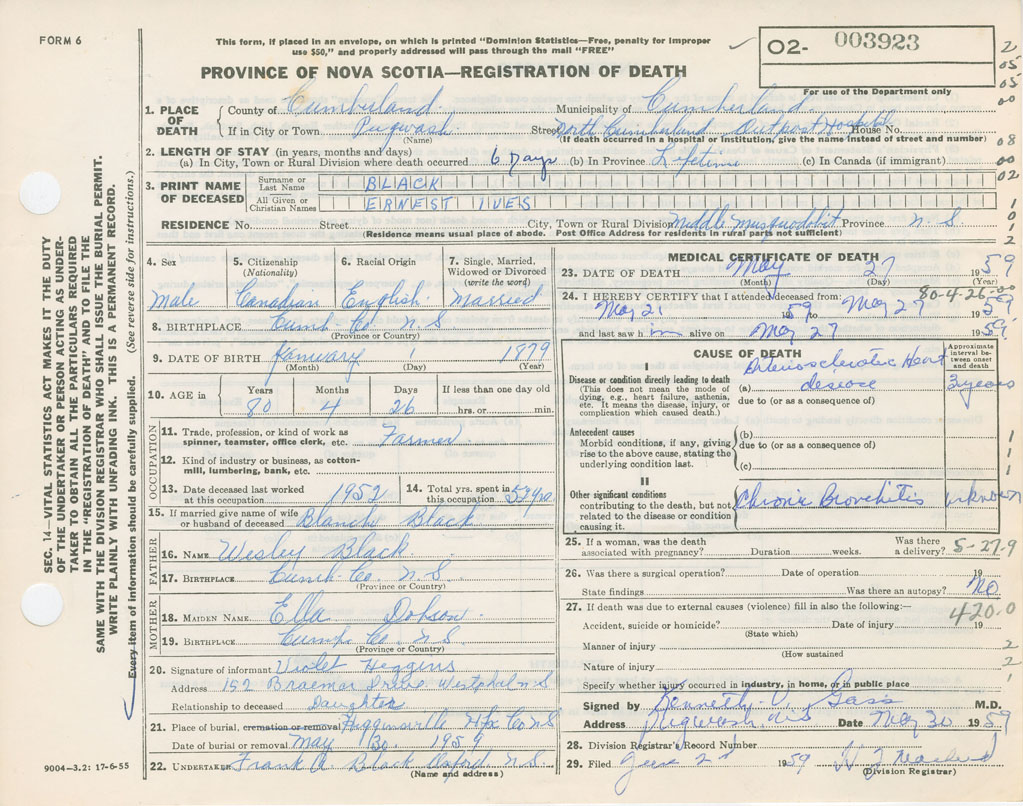 FORM 6
This form, if placed in an envelope, on which is printed "Dominion Statistics—Free, penalty for improper
use $50," and properly addressed will pass through the mail "FREE"
02- 003923
For use of the Department only
PROVINCE OF NOVA SCOTIA—REGISTRATION OF DEATH
1. PLACE OF DEATH
County of Cumberland Municipality of Cumberland
If in City or Town Pugwash Street North Cumberland Outpost Hospital House No.
(Name) (If death occurred in a hospital or institution, give the name instead of street and number)
2. LENGTH OF STAY (in years, months and days)
(a) In City, Town or Rural Division where death occurred 6 Days (b) In Province Lifetime (c) In Canada (if immigrant)
3. PRINT NAME OF DECEASED
Surname or Last Name BLACK
All Given or Christian Names ERNEST IVES
RESIDENCE No. Street City, Town or Rural Division Middle Musquodobit Province N.S
(Residence means usual place of abode. Post Office Address for residents in rural parts not sufficient)
4. Sex Male
5. Citizenship (Nationality) Canadian
6. Racial Origin English
7. Single, Married, Widowed or Divorced (write the word) Married
8. BIRTHPLACE Cumb. Co. N.S
(Province or Country)
9. DATE OF BIRTH January 1 1879
(Month) (Day) (Year)
10. AGE in Years 80 Months 4 Days 26 If less than one day old hrs. or min.
OCCUPATION
11. Trade, profession, or kind of work as spinner, teamster, office clerk, etc. Farmer
12. Kind of industry or business, as cotton-mill, lumbering, bank, etc.
13. Date deceased last worked at this occupation 1952
14. Total yrs. spent in this occupation 54 yrs
15. If married give name of wife or husband of deceased Blanche Black
FATHER
16. NAME Wesley Black
17. BIRTHPLACE Cumb. Co. N.S.
(Province or Country)
MOTHER
18. MAIDEN NAME Ella Dobson
19. BIRTHPLACE Cumb. Co. N.S
(Province or Country)
20. Signature of informant Violet Higgins
Address 152 Braemar Drive Westphal N.S
Relationship to deceased Daughter
21. Place of burial, cremation or removal Higginsville Hfx Co NS
Date of burial or removal May 30 1959
22. UNDERTAKER Frank A. Black Oxford N.S.
(Name and address)
MEDICAL CERTIFICATE OF DEATH
23. DATE OF DEATH May 27 1959
(Month) (Day) (Year)
80-4-26-00
24. I HEREBY CERTIFY that I attended deceased from:
May 21 1959 to May 27 1959
and last saw him alive on May 27 1959
CAUSE OF DEATH
Approximate interval between onset and death
I
Disease or condition directly leading to death
(This does not mean the mode of dying, e.g., heart failure, asthenia, etc. It means the disease, injury, or complication which caused death.)
(a) Arteriosclerotic Heart disease 3 years
due to (or as a consequence of)
Antecedent causes
Morbid conditions, if any, giving rise to the above cause, stating the underlying condition last.
(b)
due to (or as a consequence of)
(c)
II
Other significant conditions
contributing to the death, but not related to the disease or condition causing it.
Chronic Bronchitis unknown
25. If a woman, was the death associated with pregnancy? Duration weeks. Was there a delivery? 5-27-9
26. Was there a surgical operation? Date of operation 19
State findings Was there an autopsy? No
27. If death was due to external causes (violence) fill in also the following:—
420.0
Accident, suicide or homicide? Date of injury 19
(State which)
Manner of injury
(How sustained
Nature of injury
Specify whether injury occurred in industry, in home, or in public place
Signed by Kenneth V. Gass M.D.
Address Pugwash, N.S Date May 30 1959
28. Division Registrar's Record Number
29. Filed June 2nd 1959
(Division Registrar)
SEC. 14—VITAL STATISTICS ACT MAKES IT THE DUTY
OF THE UNDERTAKER OR PERSON ACTING AS UNDER-
TAKER TO OBTAIN ALL THE PARTICULARS REQUIRED
IN THE "REGISTRATION OF DEATH" AND TO FILE THE
SAME WITH THE DIVISION REGISTRAR WHO SHALL ISSUE THE BURIAL PERMIT.
WRITE PLAINLY WITH UNFADING INK. THIS IS A PERMANENT RECORD.
Every item of information should be carefully supplied. (See reverse side for instructions.)
9004—3.2: 17-6-55
2
05
05
00
08
00
02
1
0
1
2
1
1
1
2
2
1